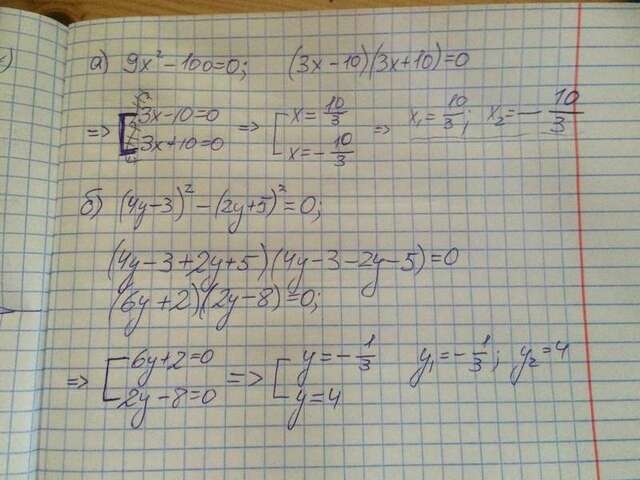 а) 9x² − 100 = 0; (3x − 10)(3x + 10) = 0
=> [ 3x − 10 = 0 => [ x = 10/3 => x₁ = 10/3; x₂ = − 10/3
3x + 10 = 0 x = − 10/3
б) (4y − 3)² − (2y + 5)² = 0;
(4y − 3 + 2y + 5)(4y − 3 − 2y − 5) = 0
(6y + 2)(2y − 8) = 0;
=> [ 6y + 2 = 0 => [ y = − 1/3 y₁ = − 1/3; y₂ = 4
2y − 8 = 0 y = 4